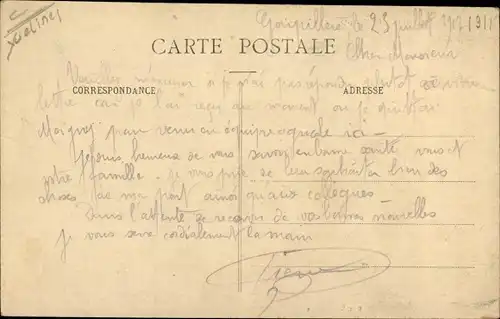 Yvelines
Goupillères le 23 juillet 1911
CARTE POSTALE
Cher Monsieur
Veuillez m'excuser si je n'ai pas répondu plutôt à votre
CORRESPONDANCE
ADRESSE
lettre car je l'ai reçu au moment ou je quittai
pour venir ici -
Je suis heureux de vous savoir en bonne santé vous et
votre famille. Je vous prie de leur souhaiter bien des
choses de ma part ainsi qu'aux collègues -
Dans l'attente de recevoir de vos bonnes nouvelles
je vous serre cordialement la main